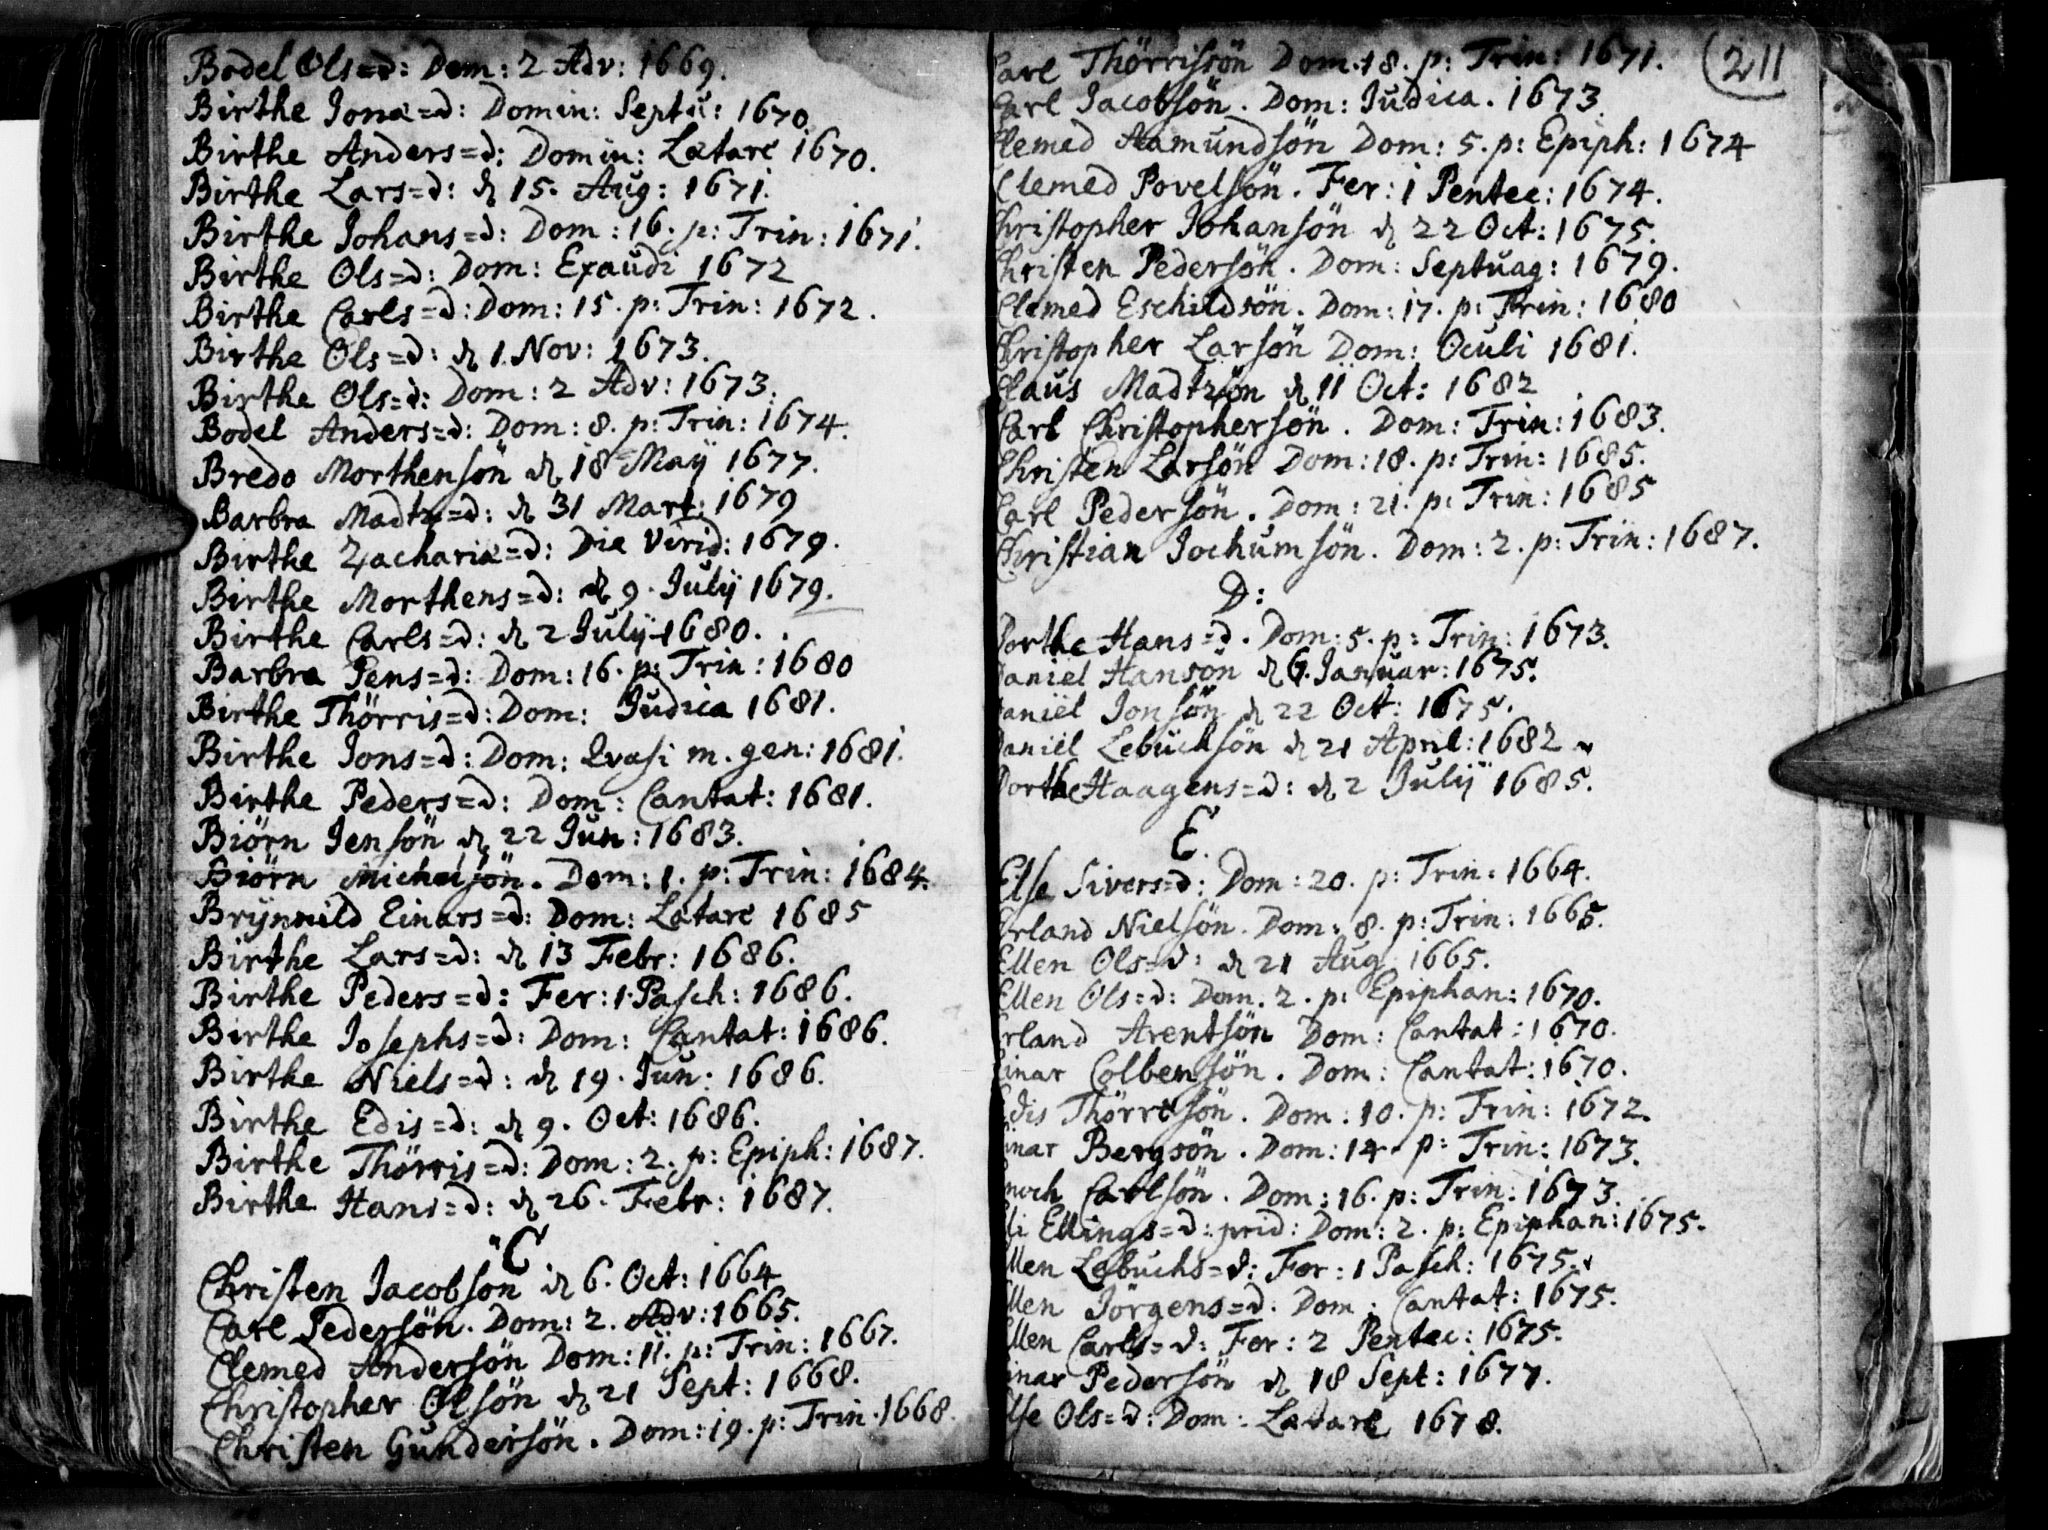 Bodel Ols=d: Dom: 2 Adv: 1669.
Birthe Jonæ=d: Domin: Septu: 1670
Birthe Anders=d: Domin: Lætare 1670.
Birthe Lars=d: d 15. Aug: 1671.
Birthe Johans=d: Dom: 16. p: Trin: 1671.
Birthe Ols=d: Dom: Exaudi 1672
Birthe Carls=d: Dom: 15. p: Trin: 1672.
Birthe Ols=d: d 1. Nov: 1673.
Birthe Ols=d: Dom: 2 Adv: 1673.
Bodel Anders=d: Dom: 8. p: Trin: 1674.
Bredo Morthensön d 18 Maÿ 1677.
Barbra Madtz=d: d 31 Mart: 1679
Birthe Zachariæ=d: Die Virid: 1679.
Birthe Morthens=d: d 9. Julÿ 1679.
Birthe Carls=d: d 2 Julÿ 1680.
Barbra Jens=d: Dom: 16. p: Trin: 1680
Birthe Thörris=d: Dom: Judica 1681.
Birthe Jons=d: Dom: Qvasi m. gen: 1681.
Birthe Peders=d: Dom: Cantat: 1681.
Biörn Jensön d 22 Jun: 1683.
Biörn Michelsön. Dom: 1. p: Trin: 1684.
Brÿnnild Einars=d: Dom: Lætare 1685
Birthe Lars=d: d 13 Febr: 1686.
Birthe Peders=d: Fer: 1 Pasch: 1686.
Birthe Josephs=d: Dom: Cantat: 1686.
Birthe Niels=d: d 19. Jun: 1686.
Birthe Edis=d: d 9. Oct: 1686.
Birthe Thörris=d: Dom: 2. p: Epiph: 1687.
Birthe Hans=d: d 26. Febr: 1687.
C
Christen Jacobsön d 6. Oct: 1664
Carl Pedersön. Dom: 2. Adv: 1665.
Clemed Andersön Dom: 11. p: Trin: 1667.
Christopher Olsön d 21 Sept: 1668.
Christen Gundersön. Dom: 19. p: Trin. 1668.
211
Carl Thörrissön Dom. 18. p: Trin: 1671.
Carl Jacobsön. Dom: Judica. 1673
Clemed Aamundsön Dom: 5. p: Epiph: 1674
Clemed Povelsön. Fer: 1 Pentec: 1674.
Christopher Johansön d 22 Oct: 1675.
Christen Pedersön. Dom: Septuag: 1679.
Clemed Eschildsön. Dom: 17. p: Trin: 1680
Christopher Larsön Dom: Oculi 1681.
Claus Madtzön d 11 Oct: 1682
Carl Christophersön. Dom: Trin: 1683.
Christen Larsön Dom: 18. p: Trin: 1685.
Carl Pedersön. Dom: 21. p: Trin: 1685
Christian Jochumsön. Dom: 2. p: Trin: 1687.
D:
Dorthe Hans=d. Dom: 5. p: Trin: 1673.
Daniel Hanson d 6. Januar: 1675.
Daniël Jonsön d 22 Oct: 1675.
Daniël Lebuchsön d 21 April: 1682
Dorthe Haagens=d: d 2 Julÿ 1685.
E.
Else Sivers=d: Dom: 20. p: Trin: 1664.
Erland Nielsön. Dom: 8. p: Trin: 1665.
Ellen Ols=d: d 21 Aug: 1665.
Ellen Ols=d: Dom. 2. p: Epiphan: 1670.
Erland Arentsön Dom: Cantat: 1670.
Einar Colbensön. Dom: Cantat: 1670.
Edis Thörresön. Dom: 10. p: Trin: 1672.
Einar Bergsön. Dom: 14. p: Trin: 1673.
Enoch Carlsön. Dom: 16. p: Trin: 1673.
Eli Ellings=d: prid: Dom: 2. p: Epiphan: 1675.
Ellen Lebuchs=d: Fer: 1 Pasch: 1675.
Ellen Jörgens=d: Dom: Cantat: 1675.
Ellen Carls=d: Fer: 2 Pentec: 1675.
Einar Pedersön d 18 Sept: 1677.
Else Ols=d: Dom: Lætare 1678.